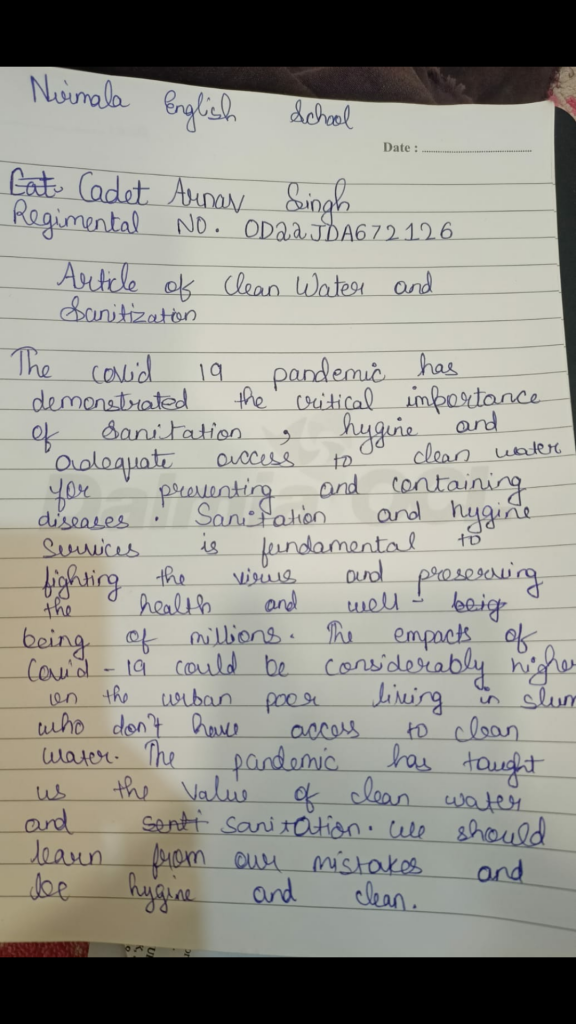 Nirmala English School
Date :
Cat. Cadet Arnav Singh
Regimental NO. OD22JDA672126
Article of Clean Water and
Sanitization
The covid 19 pandemic has
demonstrated the critical importance
of sanitation, hygine and
adequate access to clean water
for preventing and containing
diseases. Sanitation and hygine
services is fundamental to
fighting the virus and preserving
the health and well - beig
being of millions. The empacts of
Covid - 19 could be considerably higher
on the urban poor living in slum
who don't have access to clean
water. The pandemic has taught
us the value of clean water
and senti sanitation. We should
learn from our mistakes and
be hygine and clean.